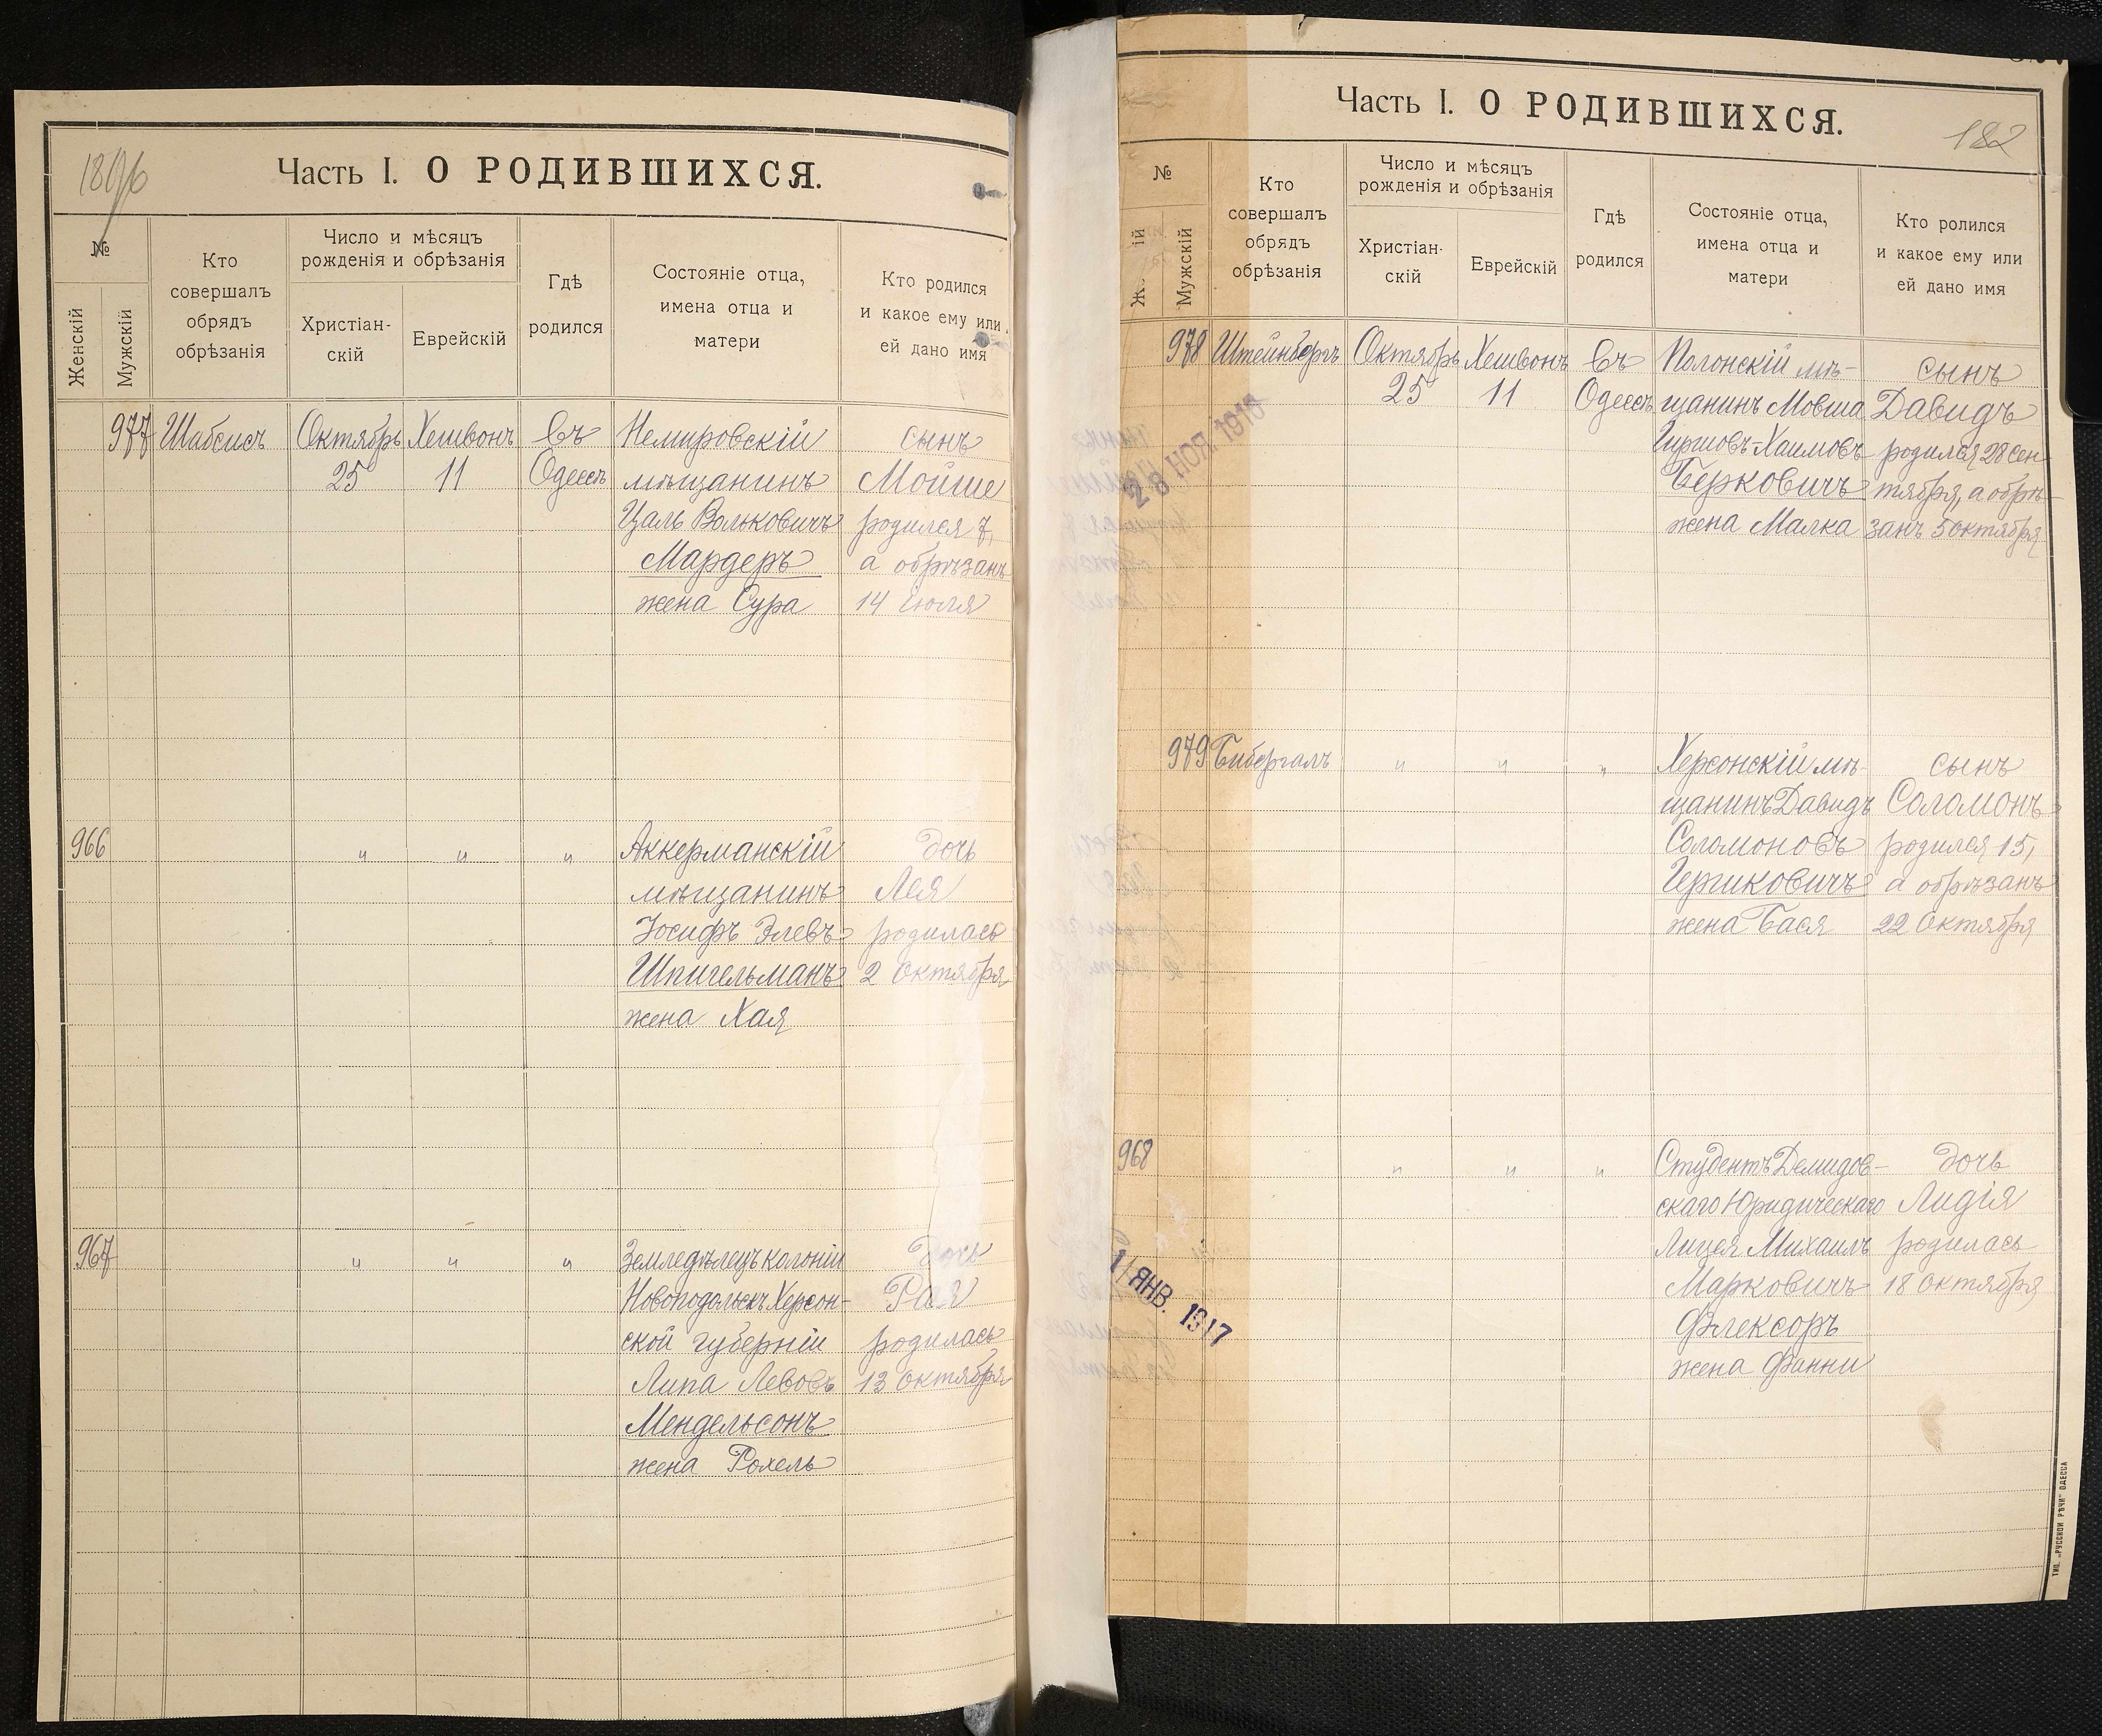 Часть I. О РОДИВШИХСЯ.
№
Женскій
Мужскій
Кто
совершалъ
обрядъ
обрѣзанія
Число и мѣсяцъ
рожденія и обрѣзанія
Христіан-
скій
Еврейскій
Гдѣ
родился
Состояніе отца,
имена отца и
матери
Кто родился
и какое ему или
ей дано имя
977
Шабсисъ
Октябрь
25
Хешвонъ
11
Въ
Одессѣ
Немировскій
мѣщанинъ
Цаль Вольковичъ
Мардеръ
жена Сура
сынъ
Мойше
родился 7,
а обрѣзанъ
14 июля
966
" " "
Аккерманскій
мѣщанинъ
Іосифъ Элевъ
Шпигельманъ
жена Хая
дочь
Лея
родилась
2 октября
967
" " "
Земледѣлецъ колоніи
Новоподольскъ Херсон-
ской губерніи
Липа Левовъ
Мендельсонъ
жена Рохель
дочь
Рая
родилась
13 октября
Часть I. О РОДИВШИХСЯ.
182
№
Мужскій
Кто
совершалъ
обрядъ
обрѣзанія
Число и мѣсяцъ
рожденія и обрѣзанія
Христіан-
скій
Еврейскій
Гдѣ
родился
Состояніе отца,
имена отца и
матери
Кто ролился
и какое ему или
ей дано имя
978
Штейнбергъ
Октябрь
25
Хешвонъ
11
Въ
Одессѣ
Полонскій мѣ-
щанинъ Мовша
Гиршовъ-Хаимовъ
Берковичъ
жена Малка
сынъ
Давидъ
родился 28 сен-
тября, а обрѣ-
занъ 5 октября
28 НОЯ 1916
979
Бибергалъ
" " "
Херсонскій мѣ-
щанинъ Давидъ
Соломоновъ
Гершковичъ
жена Бася
сынъ
Соломонъ
родился 15,
а обрѣзанъ
22 Октября
968
" " "
Студентъ Демидов-
скаго Юридическаго
Лицея Михаилъ
Марковичъ
Флексоръ
жена Фанни
дочь
Лидія
родилась
18 октября
ЯНВ. 1917
ТИП. „РУССКОЙ РѢЧИ" ОДЕССА